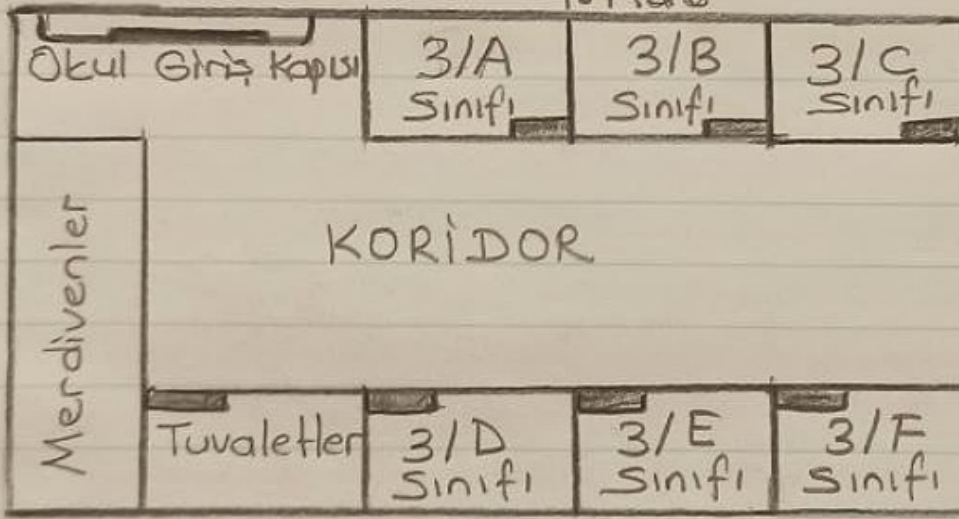 Okul Giriş Kapısı
3/A
Sınıfı
3/B
Sınıfı
3/C
Sınıfı
KORİDOR
Merdivenler
Tuvaletler
3/D
Sınıfı
3/E
Sınıfı
3/F
Sınıfı